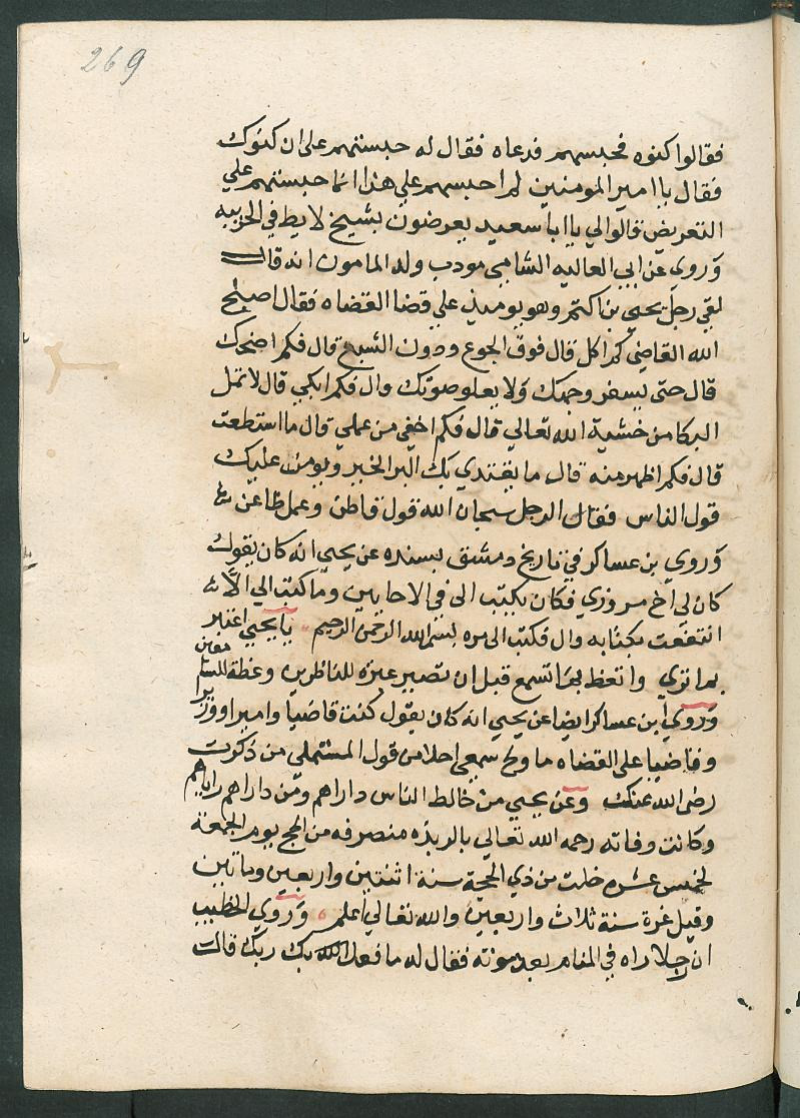 269
فقالوا كنوه فحبسهم فدعاه فقال له حبستهم على ان كنوك
فقال يا امير المومنين لم احبسهم علي هذا انما حبستهم علي
التعريض قالوا لي يا ابا سعيد يعرضون بشيخ لايط في الحربيه
وروي عن ابي العاليه الشامي مودب ولد المامون انه قال
لقي رجل يحيي بن اكثم وهو يوميذ علي قضا القضاه فقال اصلح
الله القاضي كم اكل قال فوق الجوع ودون الشبع قال فكم اضحك
قال حتى يسفر وجهك ولا يعلو صوتك وال فكم ابكي قال لا تمل
البكا من خشية الله تعالي قال فكم اخفي من عملي قال ما استطعت
قال فكم اظهر منه قال ما يقتدي بك البر الخير ويومن عليك
قول الناس فقال الرجل سبحان الله قول قاطن وعمل ظاعن
وروي بن عساكر في تاريخ دمشق بسنده عن يحيي انه كان يقول
كان لي اخ مروزي فكان يكتب الى في الاحايين وما كتب الي الا
انتفعت بكتابه وال فكتب الى مره بسم الله الرحمن الرحيم يا يحيي اعتبر
بما تري واتعظ بما تسمع قبل ان تصير عبرة للناظرين وعظة للسامعين
وروي ابن عساكر ايضا عن يحيي انه كان يقول كنت قاضيا واميرا ووزيرا
وقاضيا على القضاه ما ولج سمعي احلا من قول المستملي من ذكرت
رضى الله عنك وعن يحيي من خالط الناس داراهم ومن داراهم راياهم
وكانت وفاته رحمه الله تعالي بالربذه منصرفه من الحج يوم الجمعة
لخمس عشره خلت من ذي الحجة سنة اثنتين واربعين وماتين
وقيل غرة سنة ثلاث واربعين والله تعالي اعلم وروي الخطيب
ان رجلا راه في المنام بعد موته فقال له ما فعل الله بك ربك قال